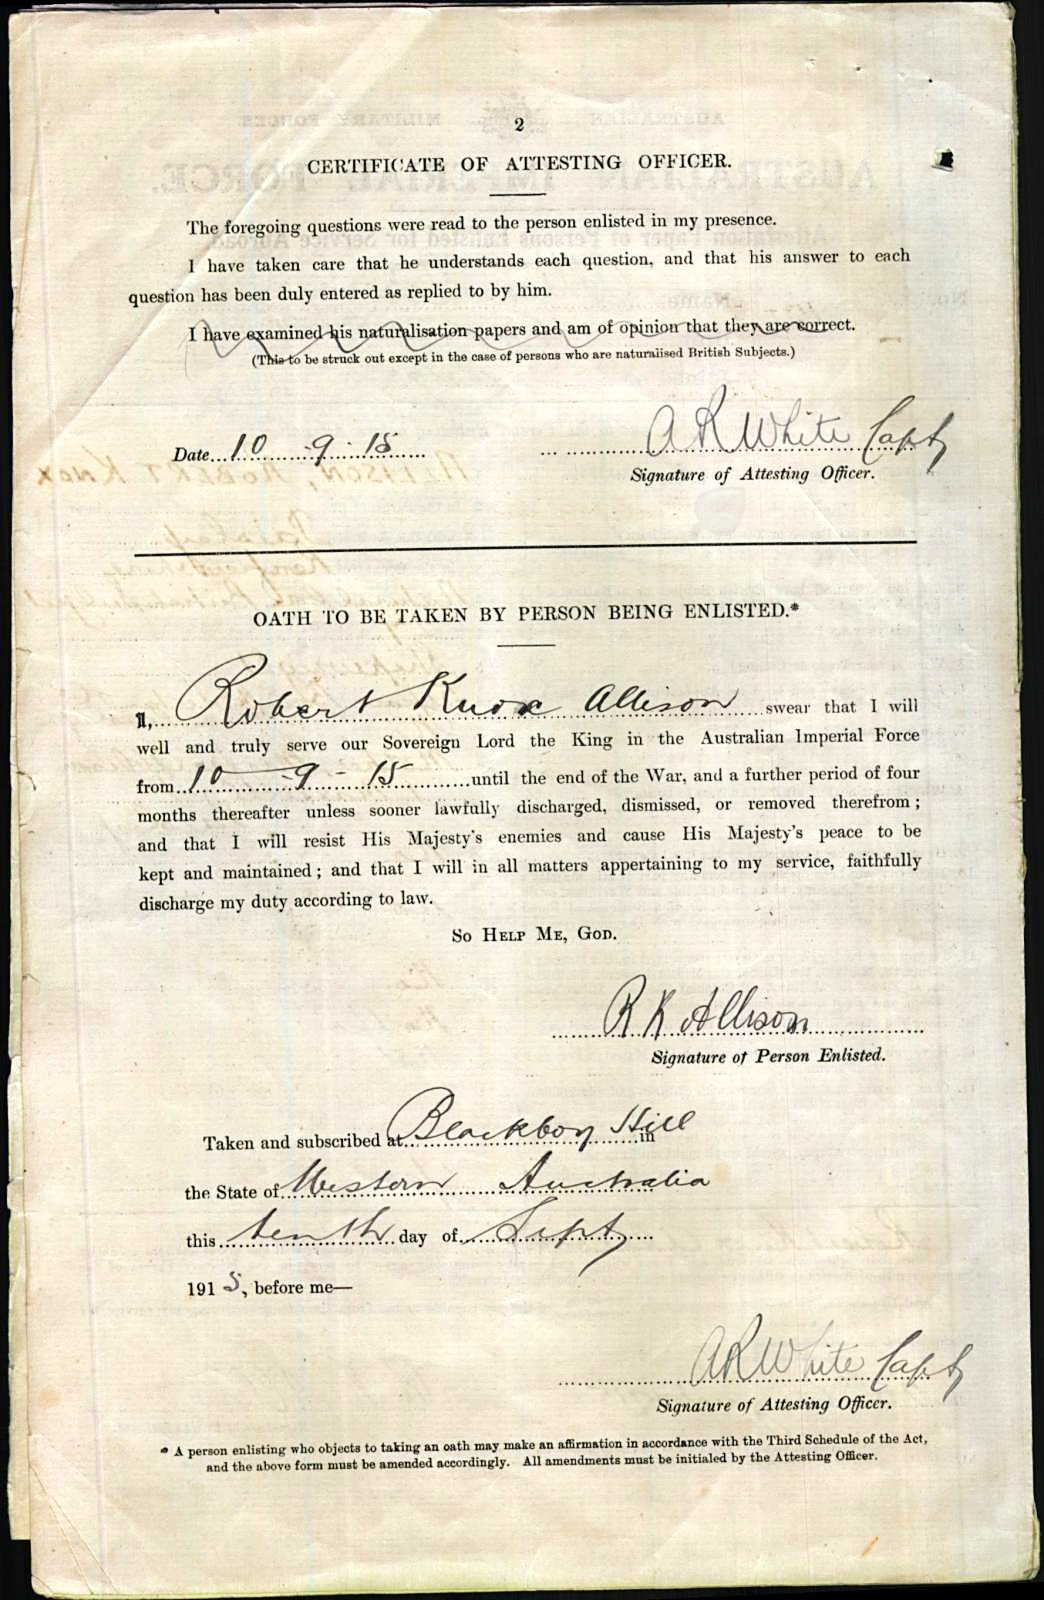 2
CERTIFICATE OF ATTESTING OFFICER.
The foregoing questions were read to the person enlisted in my presence.
I have taken care that he understands each question, and that his answer to each
question has been duly entered as replied to by him.
I have examined his naturalisation papers and am of opinion that they are correct.
(This to be struck out except in the case of persons who are naturalised British Subjects.)
Date 10 - 9 - 15 A R White Capt
Signature of Attesting Officer.
OATH TO BE TAKEN BY PERSON BEING ENLISTED.*
I, Robert Knox Allison swear that I will
well and truly serve our Sovereign Lord the King in the Australian Imperial Force
from 10 - 9 - 15 until the end of the War, and a further period of four
months thereafter unless sooner lawfully discharged, dismissed, or removed therefrom;
and that I will resist His Majesty's enemies and cause His Majesty's peace to be
kept and maintained; and that I will in all matters appertaining to my service, faithfully
discharge my duty according to law.
SO HELP ME, GOD.
R K Allison
Signature of Person Enlisted.
Taken and subscribed at Blackboy Hill in
the State of Western Australia
this tenth day of Sept
1915, before me—
A R White Capt
Signature of Attesting Officer.
* A person enlisting who objects to taking an oath may make an affirmation in accordance with the Third Schedule of the Act,
and the above form must be amended accordingly. All amendments must be initialed by the Attesting Officer.